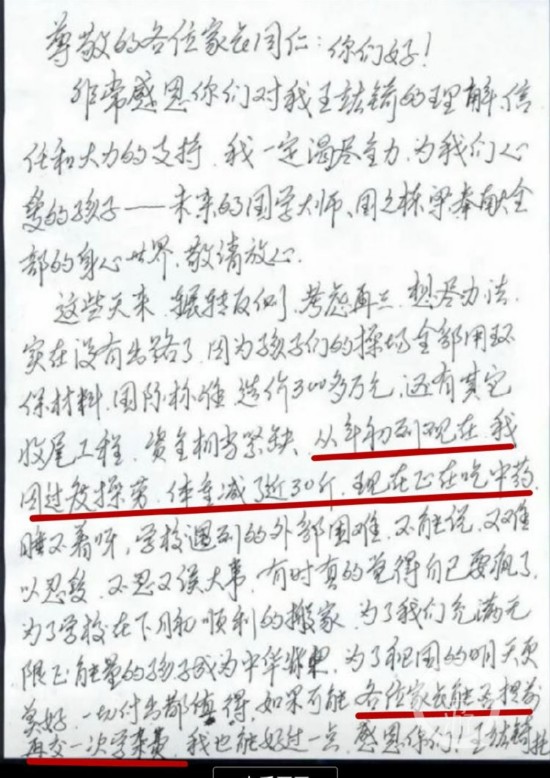 尊敬的各位家长同仁:你们好!
非常感恩你们对我王竑锜的理解、信
任和大力的支持.我一定竭尽全力.为我们心
爱的孩子——未来的国学大师、国之栋梁奉献全
部的身心世界.敬请放心.
这些天来.辗转反侧.考虑再三.想尽办法.
实在没有出路了.因为孩子们的操场全部用环
保材料.国际标准.造价300多万元.还有其它
收尾工程.资金相当紧缺.从年初到现在.我
因过度操劳.体重减了近30斤.现在正在吃中药.
睡不着呀.学校遇到的外部困难.不能说.又难
以忍受.不忍又误大事.有时真的觉得自己要疯了.
为了学校在下月初顺利的搬家.为了我们充满无
限正能量的孩子成为中华.为了祖国的明天更
美好.一切付出都值得.如果可能各位家长能否提前
再交一次学杂费.我也能好过一点.感恩你们!王竑锜